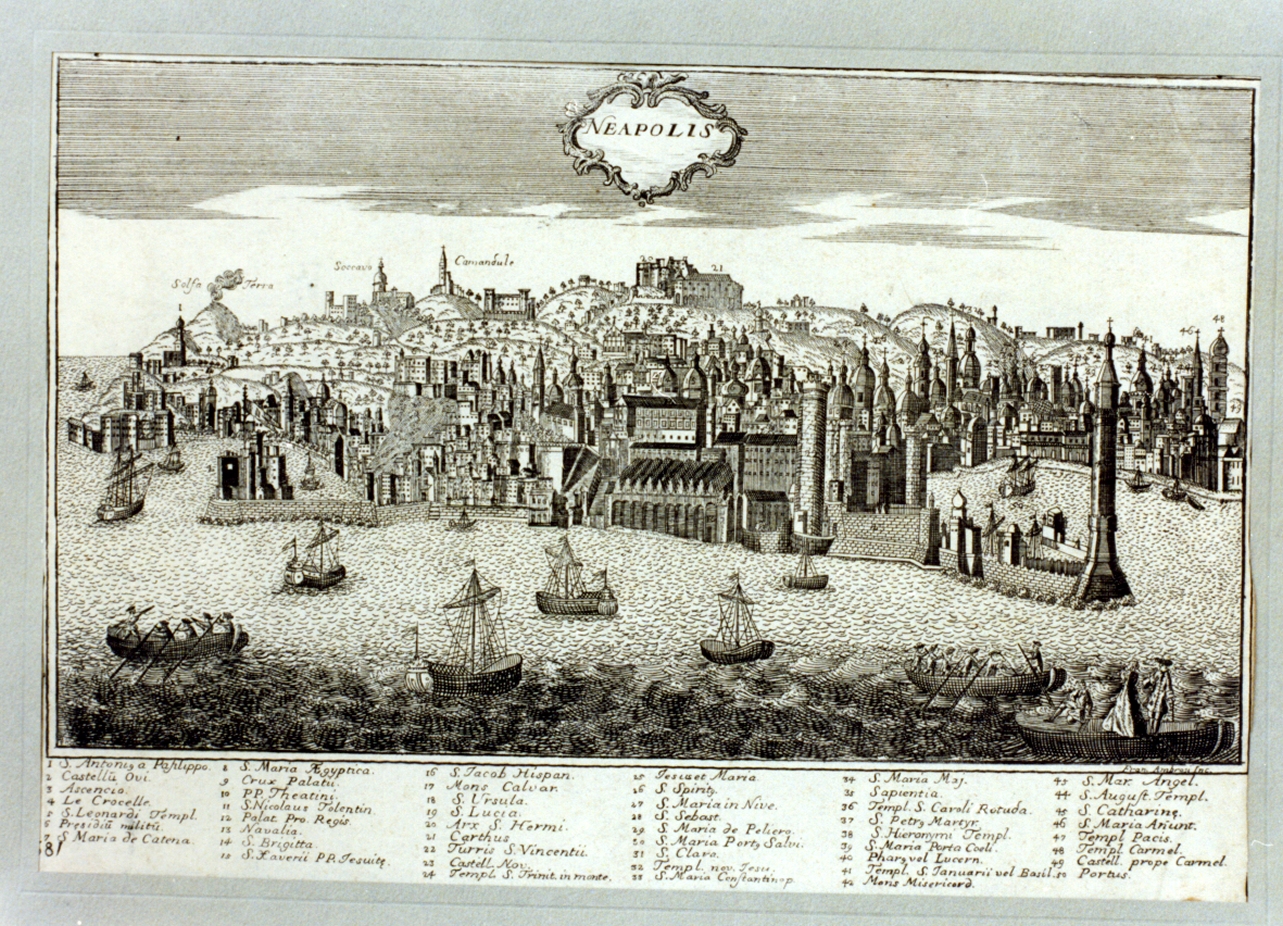 NEAPOLIS
Solfa Terra
Soccavo
Camandule
20
21
46
48
47
1 S. Antoniz a Pasilippo.
2 Castellū Ovi.
3 Ascencio.
4 Le Crocelle.
5 S. Leonardi Templ.
6 Presidiū militū.
7 S. Maria de Catena.
8 S. Maria Ægyptica.
9 Crux Palatii.
10 PP. Theatini.
11 S. Nicolaus Tolentin
12 Palat Pro. Regis.
13 Navalia.
14 S. Brigitta.
15 S. Xaverii PP. Iesuitę.
16 S. Jacob Hispan.
17 Mons Calvar.
18 S. Ursula.
19 S. Lucia.
20 Arx S. Hermi.
21 Carthus
22 Turris S. Vincentii.
23 Castell Nov.
24 Templ. S. Trinit. in monte.
25 Iesu et Maria.
26 S. Spiritz.
27 S. Maria in Nive.
28 S. Sebast.
29 S. Maria de Peliero.
30 S. Maria Portz Salvi.
31 S. Clara.
32 Templ. nov. Iesu.
33 S. Maria Constantinop.
34 S. Maria Maj.
35 Sapientia.
36 Templ. S. Caroli Rotuda.
37 S. Petrz Martyr.
38 S. Hieronymi Templ.
39 S. Maria Porta Coeli.
40 Pharz vel Lucern.
41 Templ. S. Ianuarii vel Basil.
42 Mons Misericord.
43 S. Mar. Angel.
44 S. August. Templ.
45 S. Catharinę.
46 S. Maria Anunt.
47 Templ Pacis.
48 Templ Carmel.
49 Castell. prope Carmel.
50 Portus.
81